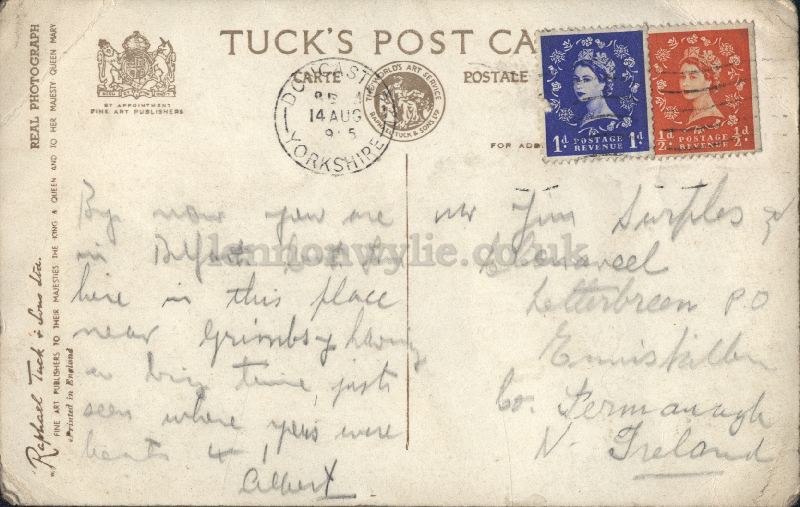 TUCK'S POST CA
CARTE POSTALE
BY APPOINTMENT
FINE ART PUBLISHERS
THE WORLD'S ART SERVICE
RAPHAEL TUCK & SONS LTD
DONCAST
14 AUG
YORKSHIRE
FOR ADD
1d POSTAGE REVENUE 1d
½d POSTAGE REVENUE ½d
REAL PHOTOGRAPH
Raphael Tuck & Sons Ltd.
FINE ART PUBLISHERS TO THEIR MAJESTIES THE KING & QUEEN AND TO HER MAJESTY QUEEN MARY
Printed in England
By now you are
in Belfast
here in this place
near Grimsby having
a time, just
seen where were
Albert
Mr Jim Surples
Letterbreen P.O
Enniskillen
Co. Fermanagh
N. Ireland
lennonwylie.co.uk